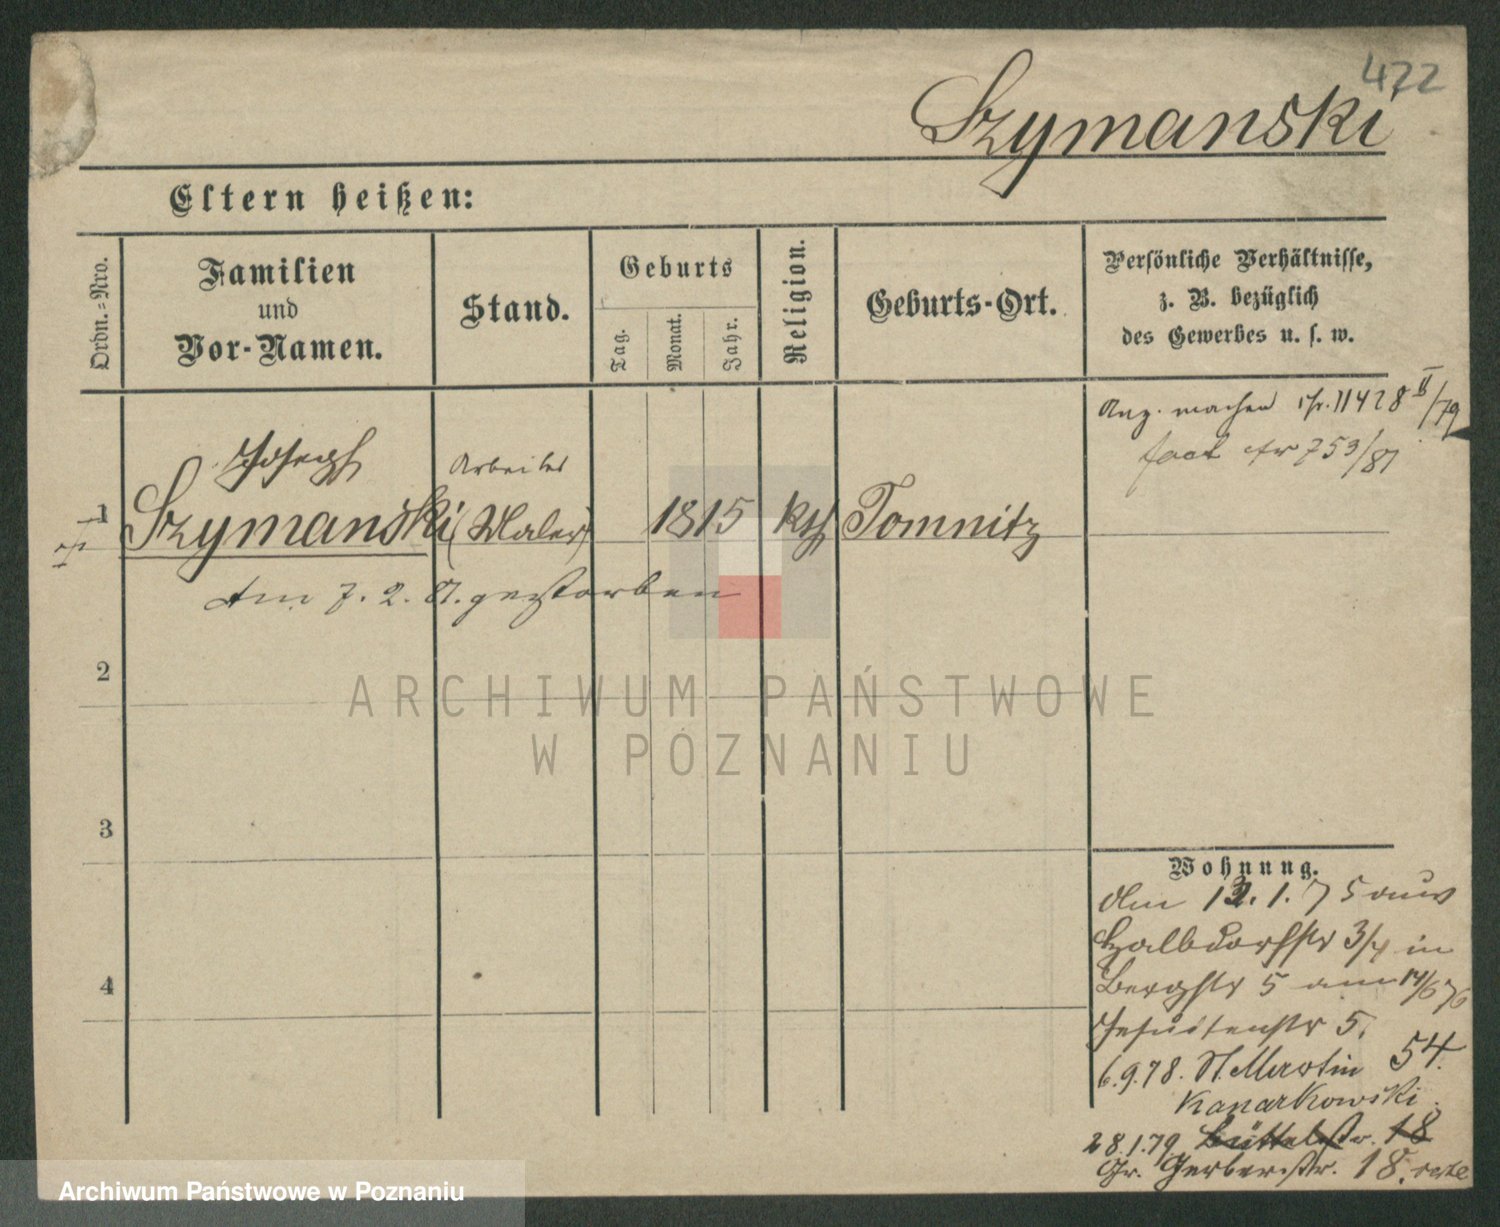 472
Szymanski
Eltern heißen:
Ordn.-Nro.
Familien
und
Vor-Namen.
Stand.
Geburts
Tag.
Monat.
Jahr.
Religion.
Geburts-Ort.
Persönliche Verhältnisse,
z. B. bezüglich
des Gewerbes u. s. w.
Anz. machen 11428 II/79
753/81
Joseph
Arbeiter
1 Szymanski (Maler) 1815 kth Tomnitz
Am 7. 2. 81. gestorben
2
3
4
Wohnung.
Am 12. 1. 75 aus
Halbdorfstr 3/4 in
Bergstr 5 am 14/6 76
Jesuitenstr 5.
6.9.78. St. Martin 54.
Kanarkowski
28.1.79. Büttelstr. 18
Gr. Gerberstr. 18.
ARCHIWUM PAŃSTWOWE
W POZNANIU
Archiwum Państwowe w Poznaniu